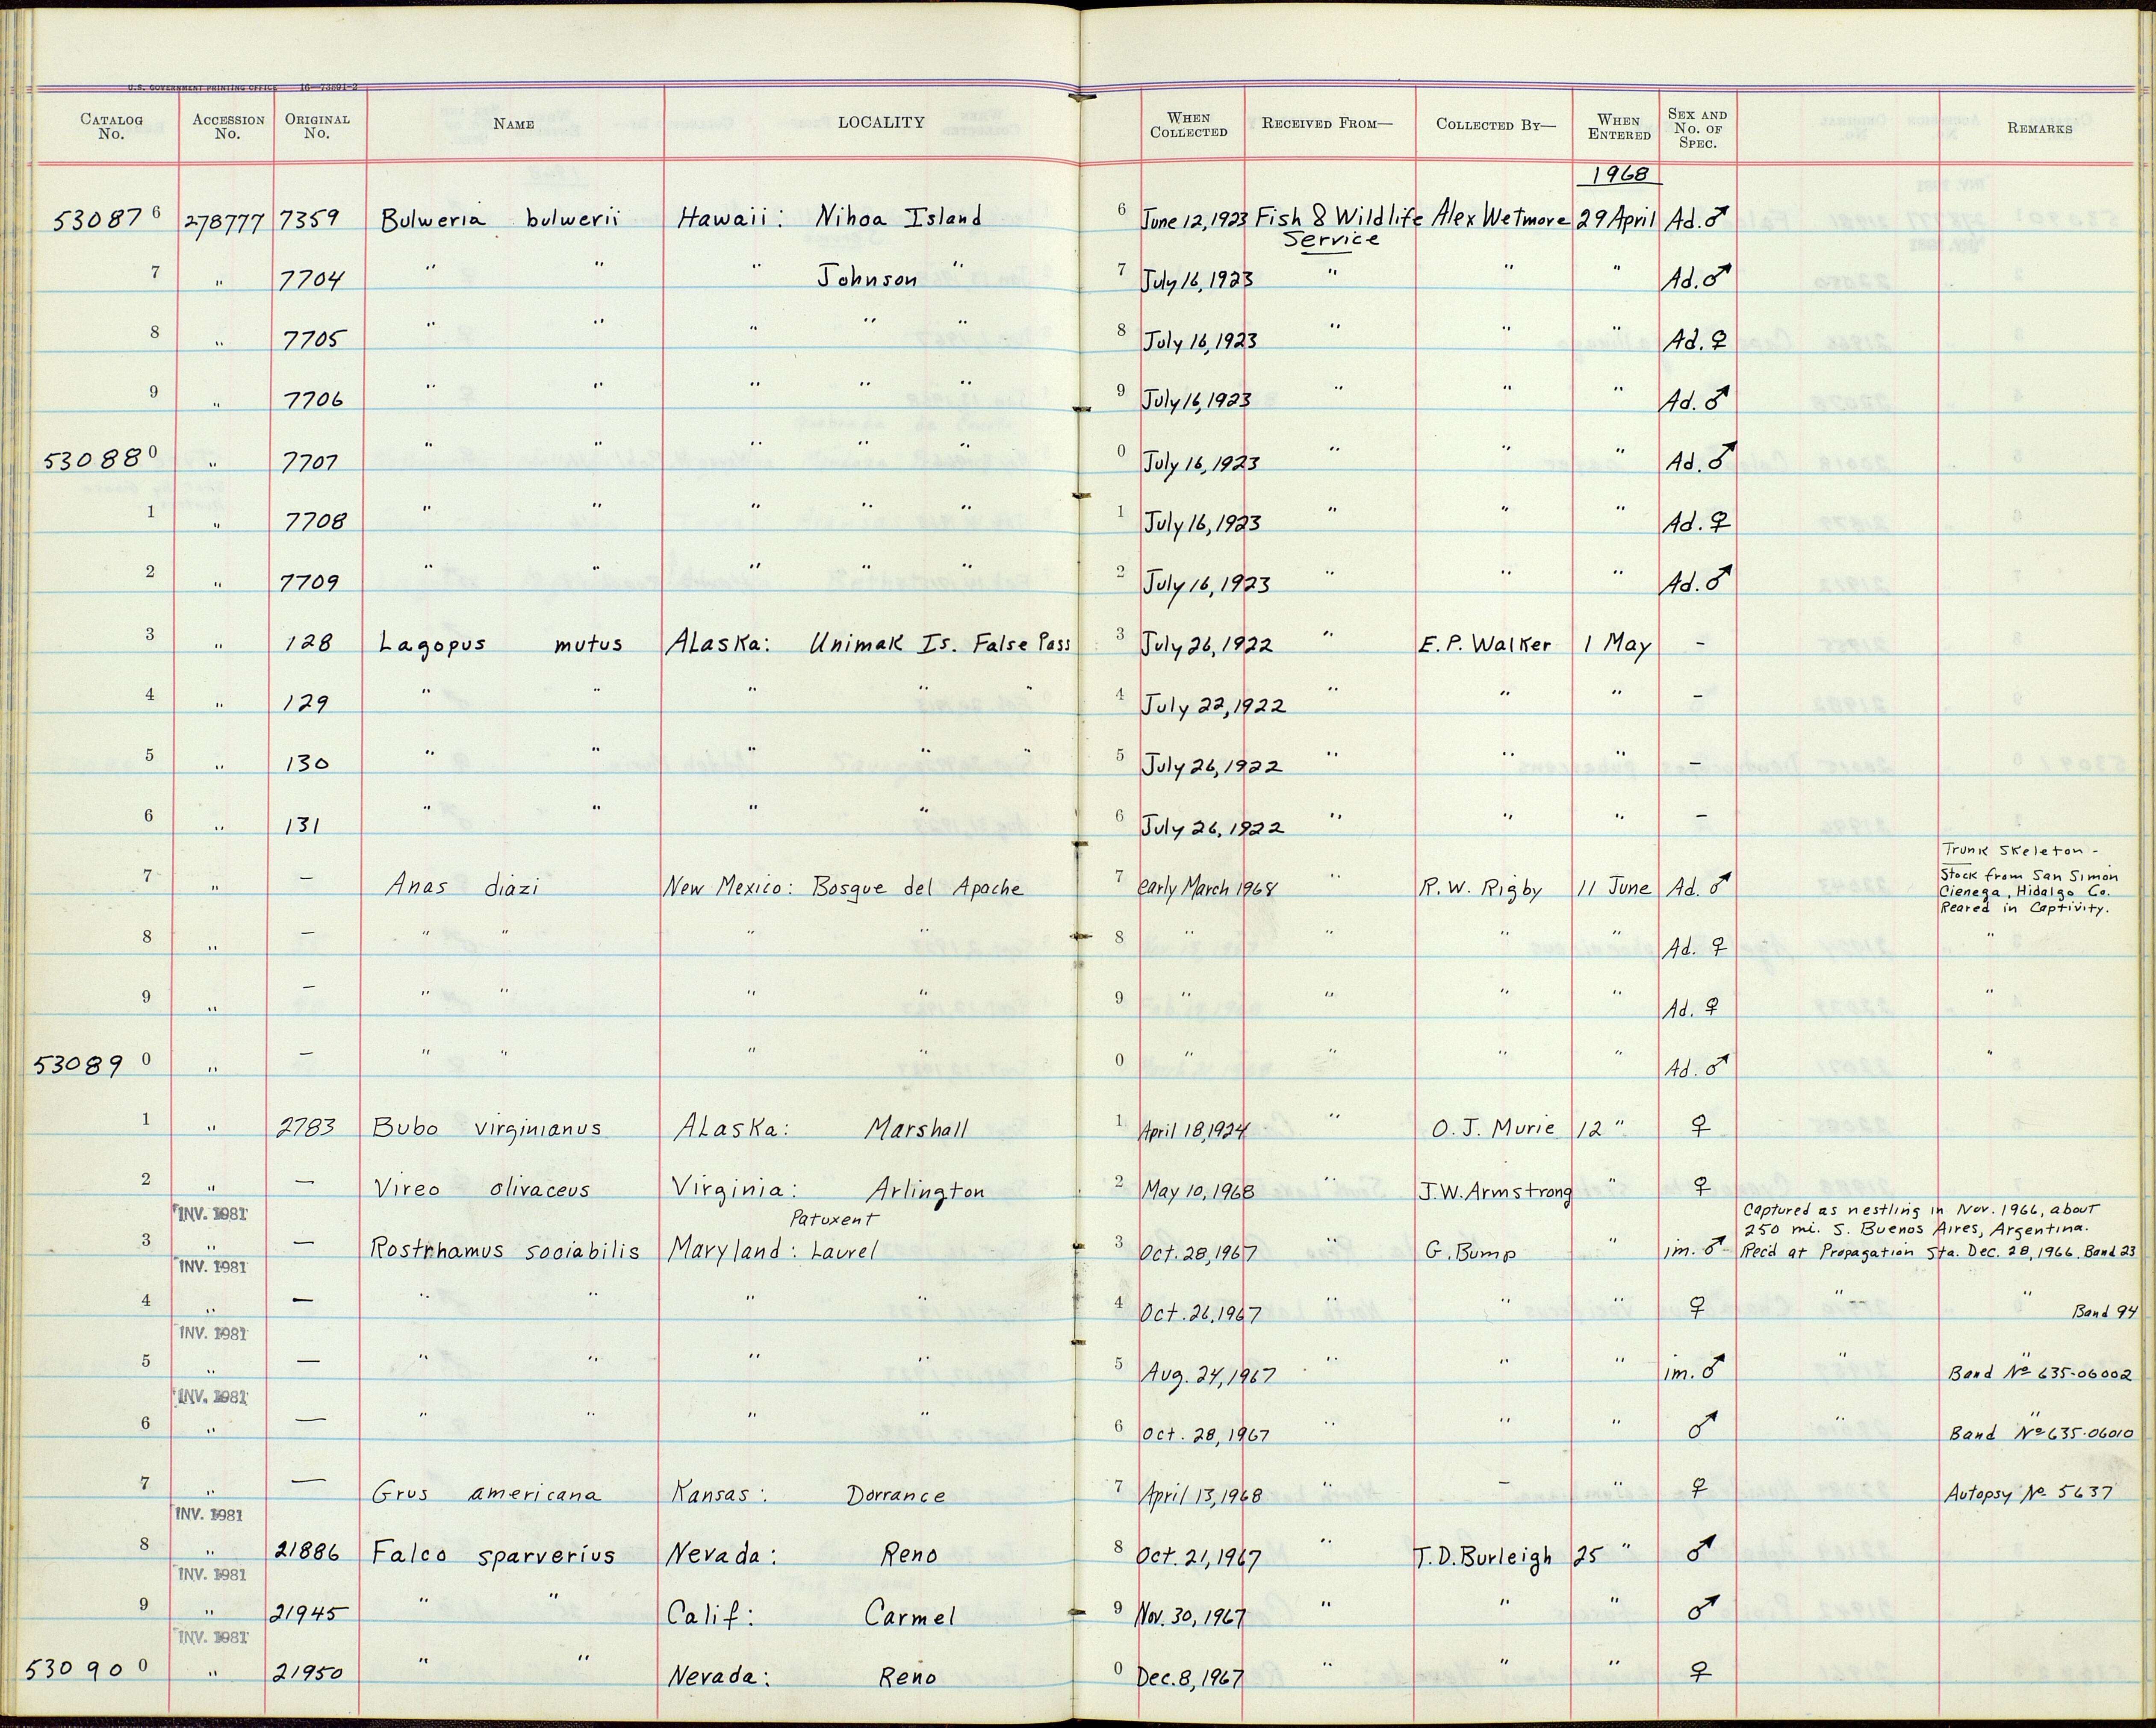 U.S. GOVERNMENT PRINTING OFFICE 16—73591-2
CATALOG No. ACCESSION No. ORIGINAL No. NAME LOCALITY WHEN COLLECTED RECEIVED FROM— COLLECTED BY— WHEN ENTERED SEX AND No. OF SPEC. REMARKS
1968
530876 278777 7359 Bulweria bulwerii Hawaii: Nihoa Island 6 June 12, 1923 Fish & Wildlife Service Alex Wetmore 29 April Ad. ♂
7 " 7704 " " " Johnson " 7 July 16, 1923 " " " Ad. ♂
8 " 7705 " " " " " 8 July 16, 1923 " " " Ad. ♀
9 " 7706 " " " " " 9 July 16, 1923 " " " Ad. ♂
530880 " 7707 " " " " " 0 July 16, 1923 " " " Ad. ♂
1 " 7708 " " " " " 1 July 16, 1923 " " " Ad. ♀
2 " 7709 " " " " " 2 July 16, 1923 " " " Ad. ♂
3 " 128 Lagopus mutus Alaska: Unimak Is. False Pass 3 July 26, 1922 " E. P. Walker 1 May –
4 " 129 " " " " " 4 July 22, 1922 " " " –
5 " 130 " " " " " 5 July 26, 1922 " " " –
6 " 131 " " " " 6 July 26, 1922 " " " –
7 " – Anas diazi New Mexico: Bosque del Apache 7 early March 1968 " R. W. Rigby 11 June Ad. ♂ Trunk Skeleton -
Stock from San Simon
Cienega, Hidalgo Co.
Reared in Captivity.
8 " – " " " " 8 " " " " Ad. ♀ "
9 " – " " " " 9 " " " " Ad. ♀ "
530890 " – " " " " 0 " " " " Ad. ♂ "
1 " 2783 Bubo virginianus Alaska: Marshall 1 April 18, 1924 " O. J. Murie 12 " ♀
2 " – Vireo olivaceus Virginia: Arlington 2 May 10, 1968 " J. W. Armstrong " ♀
INV. 1981
3 " – Rostrhamus sociabilis Maryland: Patuxent Laurel 3 Oct. 28, 1967 " G. Bump " im. ♂ Captured as nestling in Nov. 1966, about
250 mi. S. Buenos Aires, Argentina.
Rec'd at Propagation Sta. Dec. 28, 1966. Band 23
INV. 1981
4 " – " " " " 4 Oct. 26, 1967 " " " ♀ " " Band 94
INV. 1981
5 " – " " " " 5 Aug. 24, 1967 " " " im. ♂ " " Band No 635-06002
INV. 1981
6 " – " " " " 6 Oct. 28, 1967 " " " ♂ " " Band No 635-06010
7 " – Grus americana Kansas: Dorrance 7 April 13, 1968 " – " ♀ Autopsy No. 5637
INV. 1981
8 " 21886 Falco sparverius Nevada: Reno 8 Oct. 21, 1967 " T. D. Burleigh 25 " ♂
INV. 1981
9 " 21945 " " Calif: Carmel 9 Nov. 30, 1967 " " " ♂
INV. 1981
530900 " 21950 " " Nevada: Reno 0 Dec. 8, 1967 " " " ♀